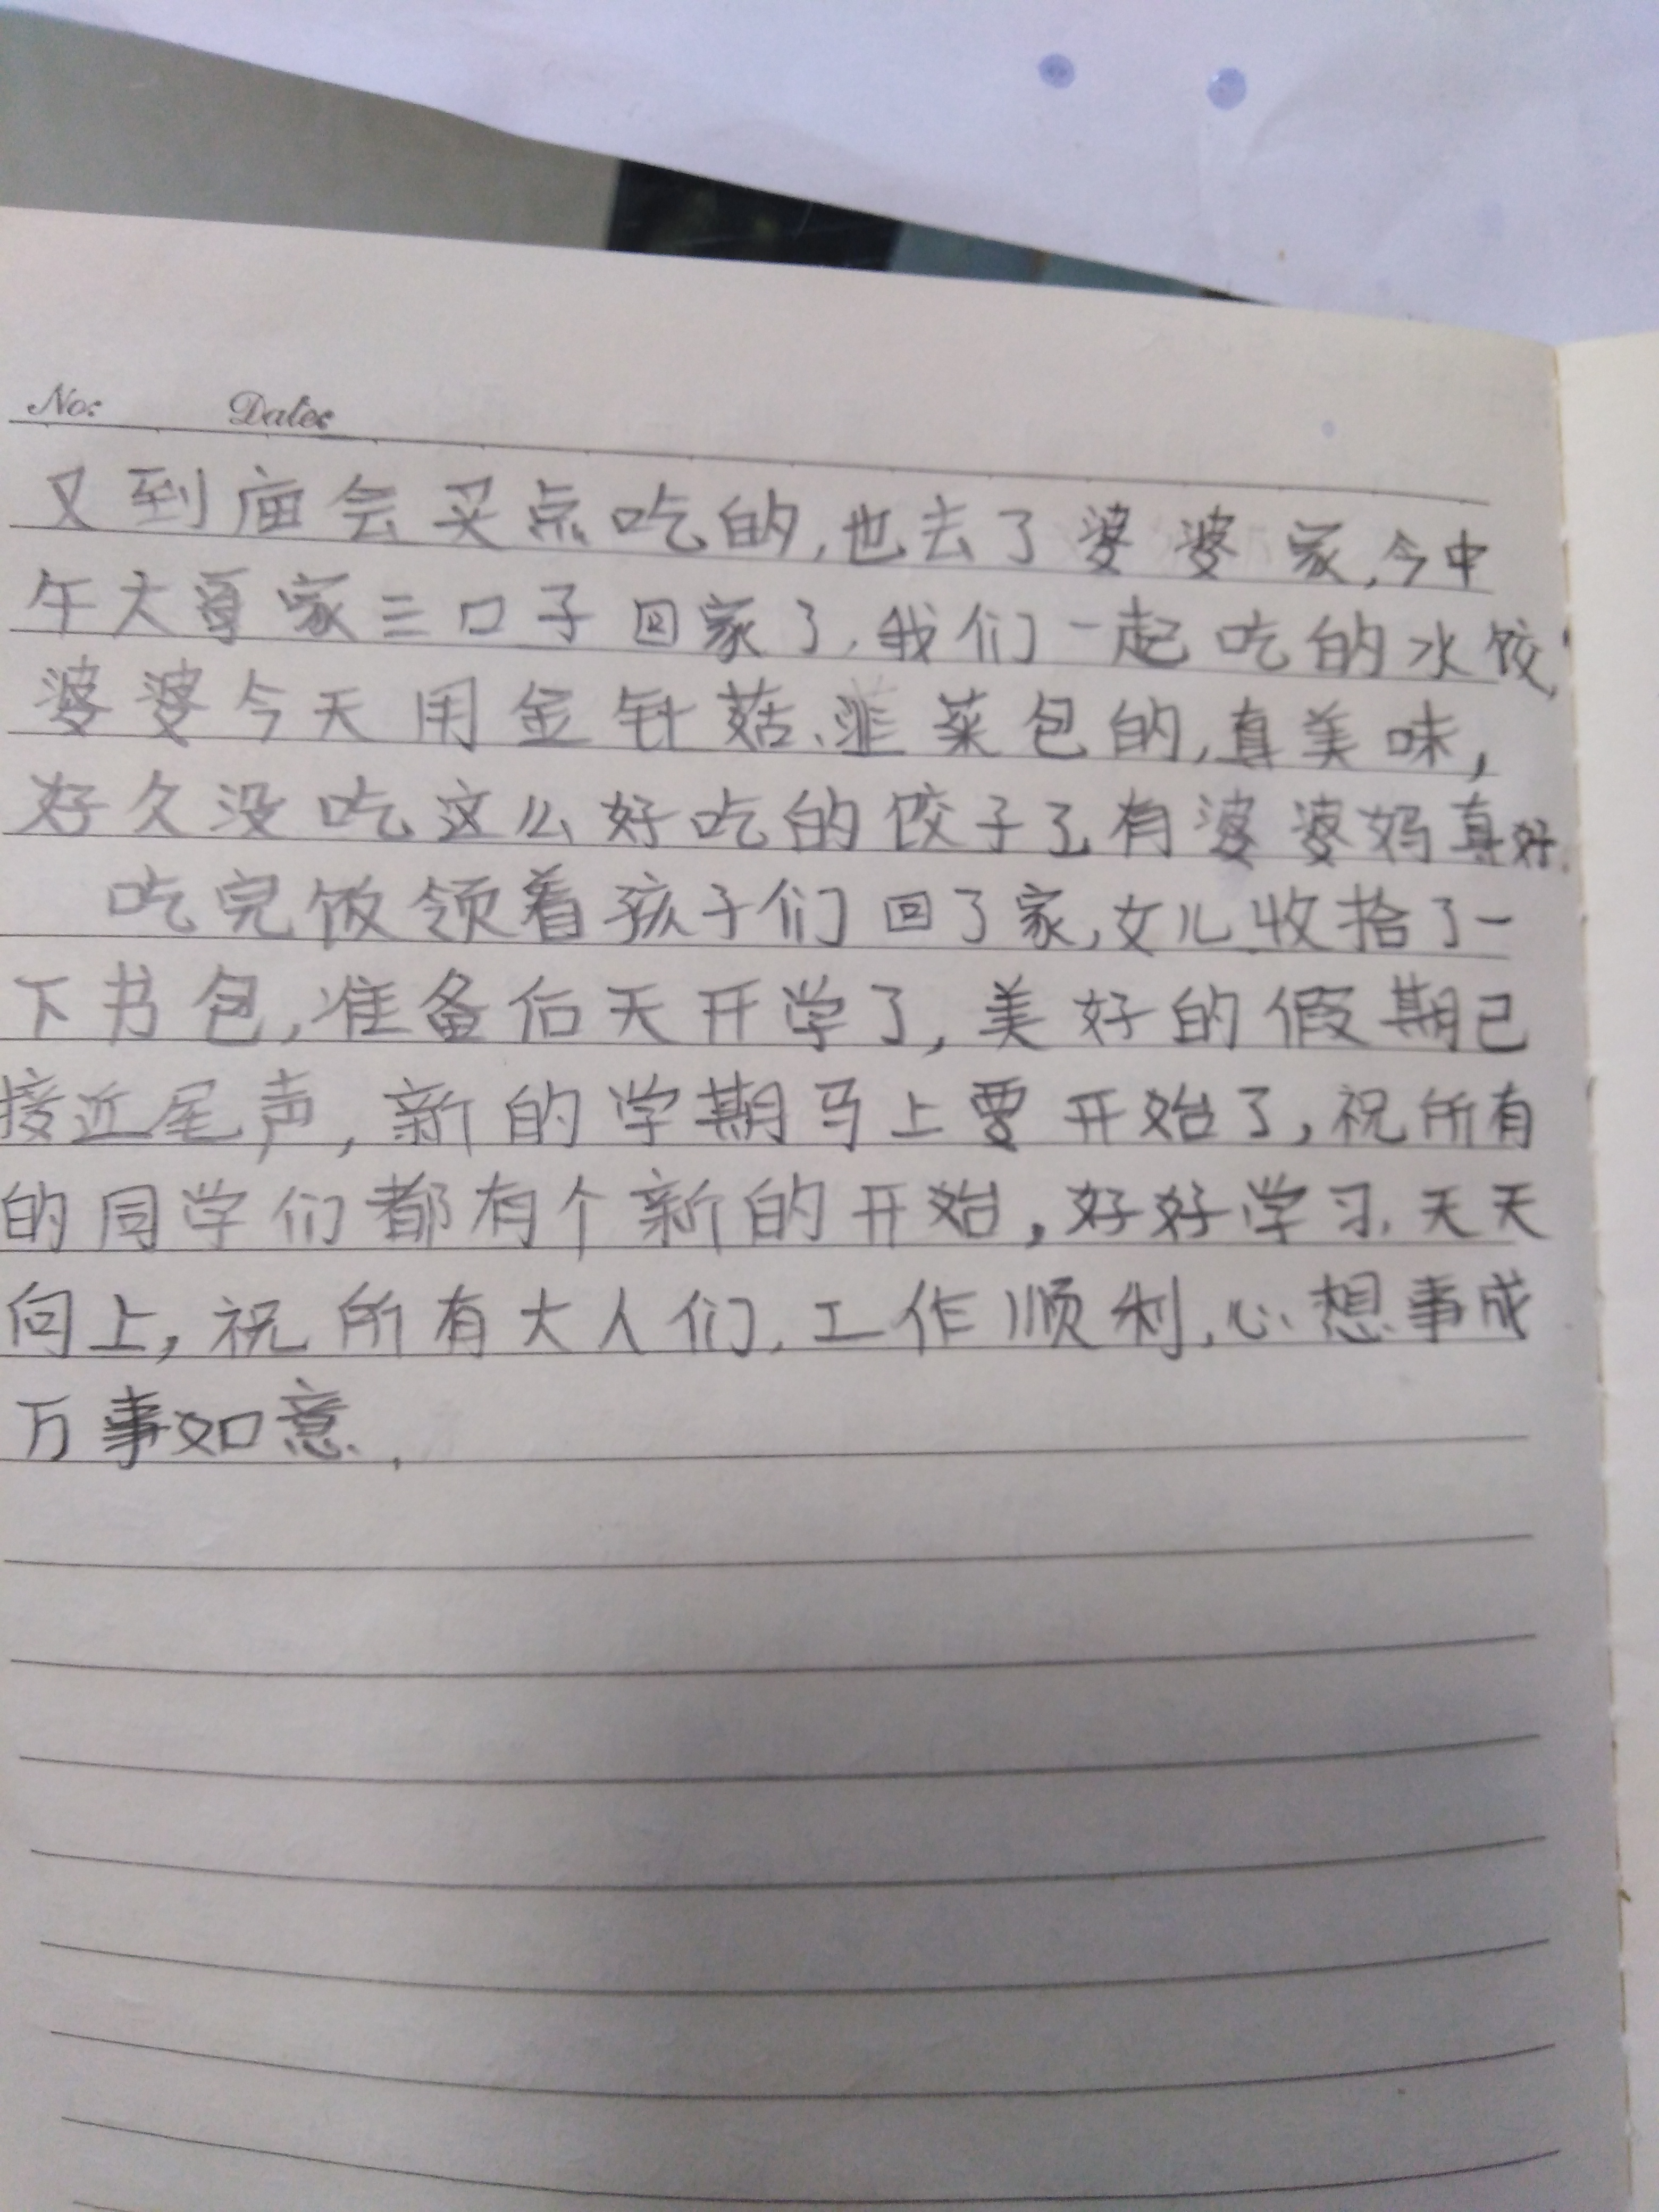 No: Date:
又到庙会买点吃的,也去了婆婆家,今中
午大 家三口子回家了,我们一起吃的水饺,
婆婆今天用金针菇、韭菜包的,真美味,
好久没吃这么好吃的饺子了,有婆婆妈真好.
吃完饭领着孩子们回了家,女儿收拾了一
下书包,准备后天开学了,美好的假期已
接近尾声,新的学期马上要开始了,祝所有
的同学们都有个新的开始,好好学习.天天
向上,祝所有大人们.工作顺利.心想事成
万事如意.